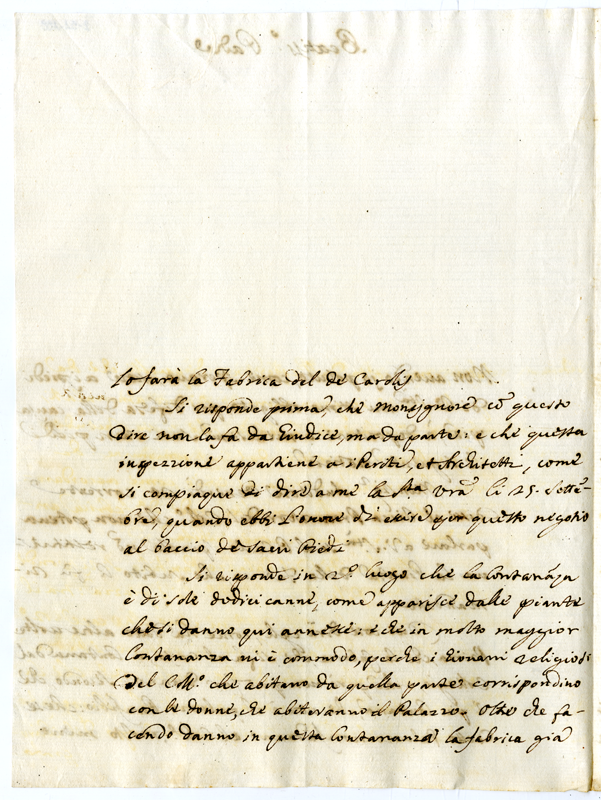 lo farà la Fabrica del de Carolis
Si risponde prima, che Monsignore cō questo
dire non la fà da Giudice, ma da parte: e che questa
inspezzione appartiene a i Periti, et Architetti, come
si compiaque di dire a me la Stà Vrã li 25. Settē-
bre, quando ebbi l'onore di essere per questo negotio
al baccio de Sacri Piedi
Si risponde in 2.º luogo che la lontananza
è di sole dodici canne, come apparisce dalle piante
che si danno qui annesse: e che in molto maggior
lontananza vi è commodo, perche i Giovani Religiosi
del C. M.º che abitano da quella parte corrispondino
con le donne, che abiteranno il Palazzo. Oltre che fa-
cendo danno in questa lontananza la fabrica già